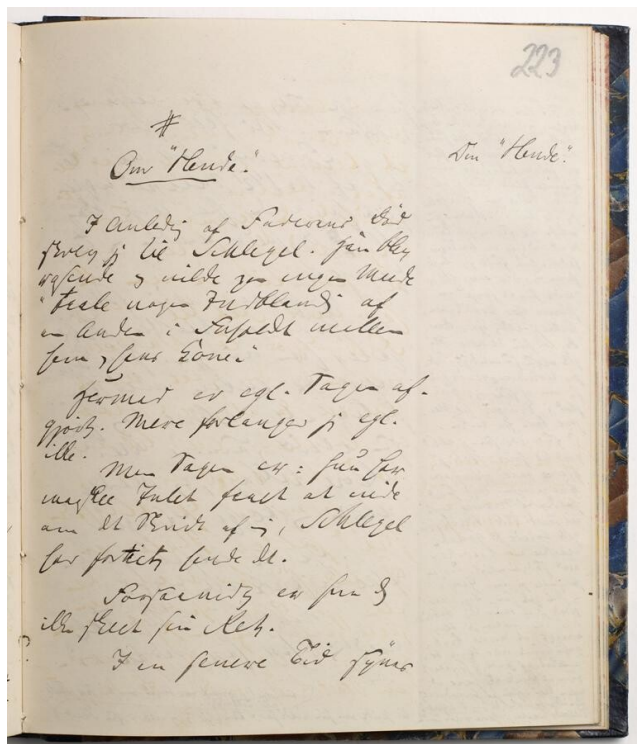 223
#
Om "Hende".
Om "Hende".
I Anledng af Faderens Død
skrev jeg til Schlegel. Han blev
rasende og vilde paa ingen Maade
"taale nogen Indblandg af
en Anden i Forholdet mellem
ham og hans Kone."
Hermed er egl. Sagen af-
gjort. Mere forlanger jeg egl.
ikke.
Men Sagen er: hun har
maaskee Intet faaet at vide
om det Skridt af mig, Schlegel
har fortiet hende det.
Forsaavidt er hun dog
ikke skeet sin Ret.
I en senere Tid synes